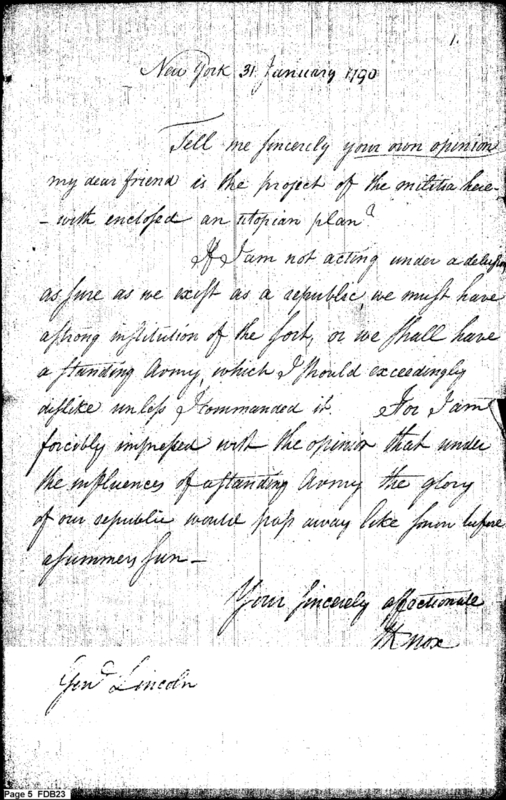 1.
New York 31 January 1790
Tell me sincerely your own opinion
my dear friend is the project of the militia here-
- with enclosed an utopian plan?
If I am not acting under a delusion
as sure as we exist as a republic, we must have
a strong institution of the sort, or we shall have
a standing Army, which I should exceedingly
dislike unless I commanded it. For I am
forcibly impressed with the opinion that under
the influences of a standing Army the glory
of our republic would pass away like snow before
a summers sun -
Your sincerely affectionate
HKnox
Genl Lincoln
Page 5 FDB23